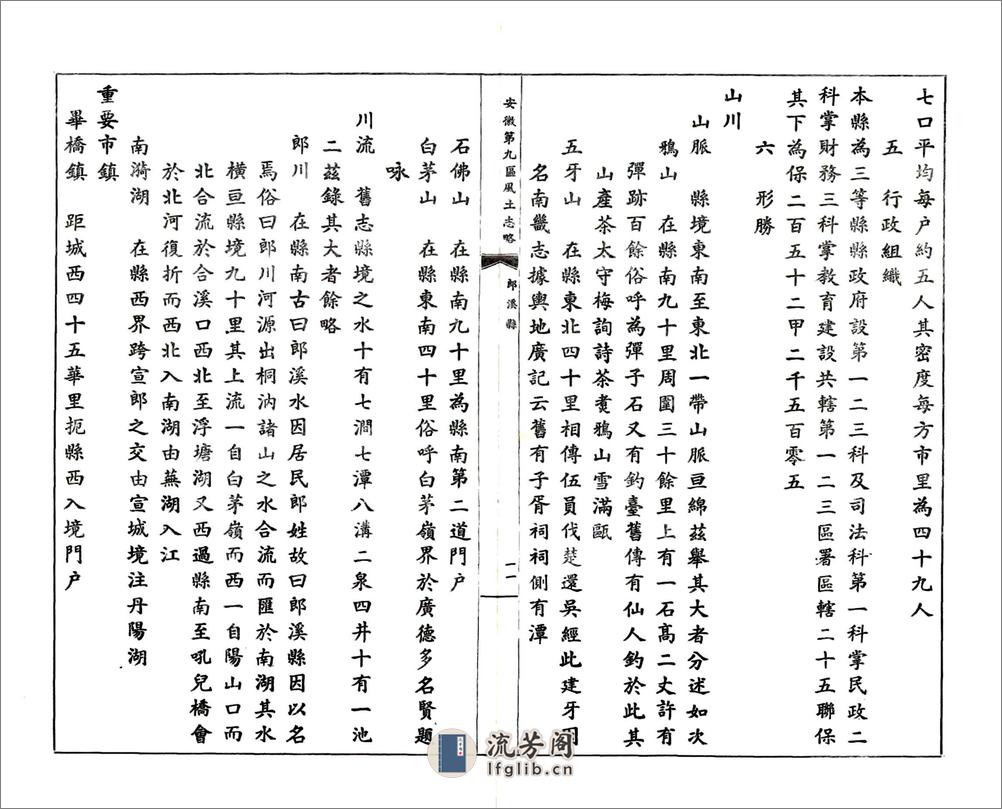 七口平均每户約五人其密度每方市里為四十九人
五　行政組織
本縣為三等縣縣政府設第一二三科及司法科第一科掌民政二
科掌財務三科掌教育建設共轄第一二三區署區轄二十五聯保
其下為保二百五十二甲二千五百零五
六　形勝
山川
山脈　縣境東南至東北一帶山脈亘綿茲舉其大者分述如次
鴉山　在縣南九十里周圍三十餘里上有一石高二丈許有
彈跡百餘俗呼為彈子石又有釣臺舊傳有仙人釣於此其
山產茶太守梅詢詩茶煑鴉山雪滿甌
五牙山　在縣東北四十里相傳伍員伐楚還吳經此建牙
名南畿志據輿地廣記云舊有子胥祠祠側有潭
安徽第九區風土志略
郎溪縣
二一
石佛山　在縣南九十里為縣南第二道門户
白茅山　在縣東南四十里俗呼白茅嶺界於廣德多名賢題
咏
川流　舊志縣境之水十有七澗七潭八溝二泉四井十有一池
二茲錄其大者餘略
郎川　在縣南古曰郎溪水因居民郎姓故曰郎溪縣因以名
焉俗曰郎川河源出桐汭諸山之水合流而匯於南湖其水
橫亘縣境九十里其上流一自白茅嶺而西一自陽山口而
北合流於合溪口西北至浮塘湖又西過縣南至吼兒橋會
於北河復折而西北入南湖由蕪湖入江
南漪湖　在縣西界跨宣郎之交由宣城境注丹陽湖
重要市鎮
畢橋鎮　距城西四十五華里扼縣西入境門户
流芳阁
lfglib.cn